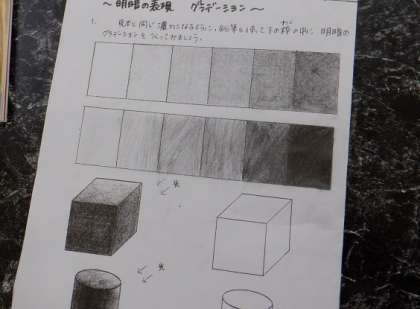 ～ 明暗の表現　グラデーション ～
1. 見本と同じ濃さになるように、鉛筆を使って下の枠の中に 明暗の
グラデーションを つくってみましょう。
光
光